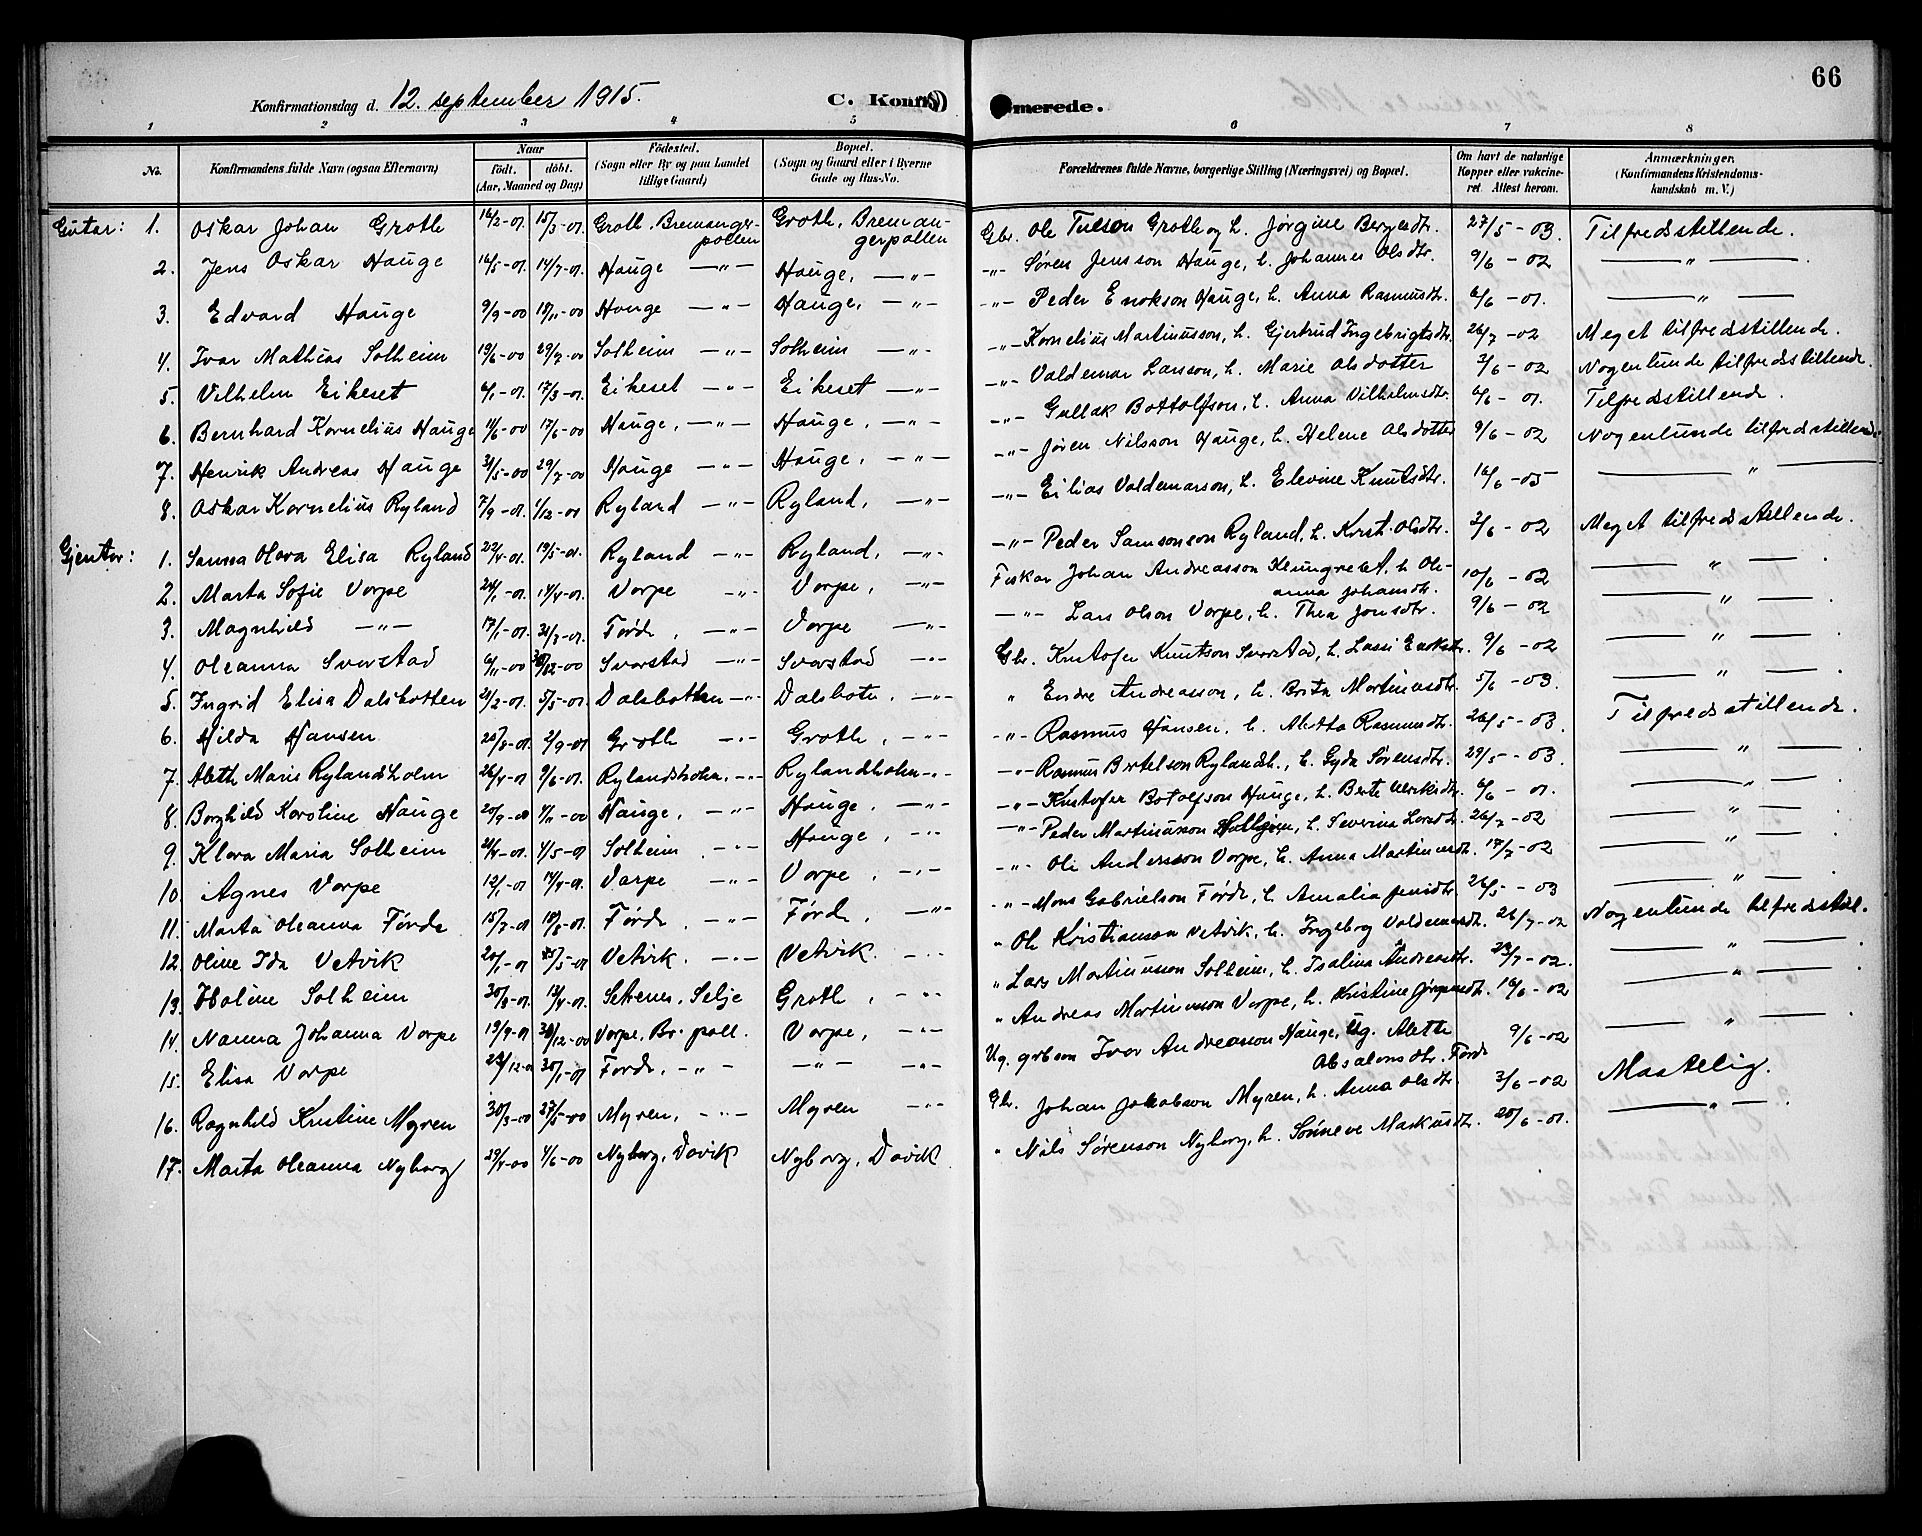 66
Konfirmationsdag d. 12. september 1915. C. Konfirmerede.
1 2 3 4 5 6 7 8
No. Konfirmandens fulde Navn (ogsaa Efternavn) Naar født. døbt. (Aar, Maaned og Dag) Fødested. (Sogn eller By og paa Landet tillige Gaard) Bopæl. (Sogn og Gaard eller i Byerne Gade og Hus-No. Forældrenes fulde Navne, borgerlige Stilling (Næringsvei) og Bopæl. Om havt de naturlige Kopper eller vakcineret. Attest herom. Anmærkninger. (Konfirmandens Kristendomskundskab m. V.)
Gutar: 1. Oskar Johan Groth 16/2-01 15/3-01 Groth, Bremangerpollen Groth, Bremangerpollen Gbr. Ole Groth og h. Jørgine 27/5-03. Tilfredsstillende.
2. Jens Oskar Hauge 16/5-01. 14/7-01. Hauge —"— Hauge, —"— —"— Søren Jensson Hauge, h. Johanne Olsdtr. 9/6-02 —"—
3. Edvard Hauge 9/9-00 18/11-00 Hauge —"— Hauge, —"— —"— Peder Enokson Hauge, h. Anna Rasmusdtr. 6/6-01. —"—
4. Ivar Mathias Solheim 19/6-00 29/7-00 Solheim —"— Solheim —"— —"— Kornelius Martinusson, h. Gjertrud Ingebrigtsdtr. 26/7-02 Meget tilfredsstillende.
5. Vilhelm Eikeset 6/1-01. 17/3-01. Eikeset —"— Eikeset —"— —"— Valdemar Larsson, h. Marie Olsdotter 3/6-02 Nogenlunde tilfredsstillende.
6. Bernhard Kornelius Hauge 11/6-00 17/6-00 Hauge, —"— Hauge, —"— —"— Gullak Bottolfson, h. Anna Vilhelmsdtr. 6/6-01. Tilfredsstillende.
7. Henrik Andreas Hauge 31/5-00 29/7-00 Hauge —"— Hauge, —"— —"— Jøren Nilsson Hauge, h. Helene Olsdotter 9/6-02 Nogenlunde tilfredsstillende
8. Oskar Kornelius Ryland 7/9-01. 1/12-01 Ryland —"— Ryland, —"— —"— Eilias Valdemarson, h. Elevine Knutsdtr. 16/6-05 —"—
Gjentor: 1. Sanna Olava Elisa Ryland 22/4-01. 19/5-01. Ryland —"— Ryland, —"— —"— Peder Samsonson Ryland, h. Krist. Olsdtr. 3/6-02 Meget tilfredsstillende.
2. Marta Sofie Vorpe 24/1-01. 14/4-01. Vorpe —"— Vorpe, —"— Fiskar Johan Andreasson h. Oleanna Johansdtr. 10/6-02 —"—
3. Magnhild —"— 17/1-01. 31/3-01. Førde, —"— Vorpe —"— —"— Lars Olson Vorpe, h. Thea Jonsdtr. 9/6-02 —"—
4. Oleanna Svorstad 6/11-00 30/12-00 Svorstad —"— Svorstad —"— Gbr. Kristofer Knutson Svorstad, h. 9/6-02 —"—
5. Ingrid Elisa Dalsbotten 21/2-01. 5/5-01. Dalsbotten —"— Dalsbotn, —"— " Endre Andreasson, h. Brita Martinusdtr. 5/6-03. —"—
6. Hilda Hansen 20/8-01. 2/9-01 Groth —"— Groth, —"— —"— Rasmus Hansen, h. Metta Rasmusdtr. 26/5-03. Tilfredsstillende.
7. Aleth Marie Rylandsholm 26/4-01 9/6-01. Rylandsholm, —"— Rylandsholm —"— —"— Rasmus Bertelson Rylandsh., h. Gyda Sørensdtr. 29/5-03. —"—
8. Borghild Karoline Hauge 20/9-00 4/11-00 Hauge, —"— Hauge, —"— —"— Kristofer Botolfson Hauge, h. Berte Ulriksdtr. 6/6-01. —"—
9. Klara Maria Solheim 21/4-01. 4/5-01 Solheim —"— Hauge, —"— —"— Peder Martinusson h. Severina Larsdtr. 26/7-02 —"—
10. Agnes Vorpe 12/1-01 14/4-01. Vorpe —"— Vorpe, —"— —"— Ole Andersson Vorpe, h. Anna Martinusdtr. 17/7-02 —"—
11. Marta Oleanna Førde 15/7-01 18/8-01. Førde, —"— Førde, —"— —"— Mons Gabrielson Førde, h. Amalia Jensdtr. 26/5-03 —"—
12. Oline Ida Vetvik 20/1-01 /5-01 Vetvik. —"— Vetvik. —"— " Ole Kristianson Vetvik, h. Ingeborg Valdemarsdtr. 26/7-02 Nogenlunde tilfredsstill.
13. Haline Solheim 30/3-01. 13/4-01. Setrenes, Selje Groth, —"— " Lars Martinusson Solheim, h. Isalina Andreasdtr. 29/7-02. —"—
14. Nanna Johanna Vorpe 19/9-01 30/12-00 Vorpe, Br. poll. Vorpe, —"— " Andreas Martinusson Vorpe, h. Kristine Jørgensdtr. 16/6-02 —"—
15. Elisa Vorpe 24/12-00 30/1-01 Førde, —"— —"— —"— Ug. grbson Ivar Andreasson Hauge, ug. Alette Absalonsdtr. Førde 9/6-02 —"—
16. Ragnhild Kristine Myren 30/3-00 27/5-00 Myren, —"— Myren —"— Gbr. Johan Jakobson Myren, h. Anna Olsdtr. 3/6-02 Maatelig.
17. Marta Oleanna Nyborg 29/4-00 4/6-00 Nyborg, Davik Nyborg, Davik " Nils Sørenson Nyborg, h. Sønneve Markusdtr. 20/6-01. —"—